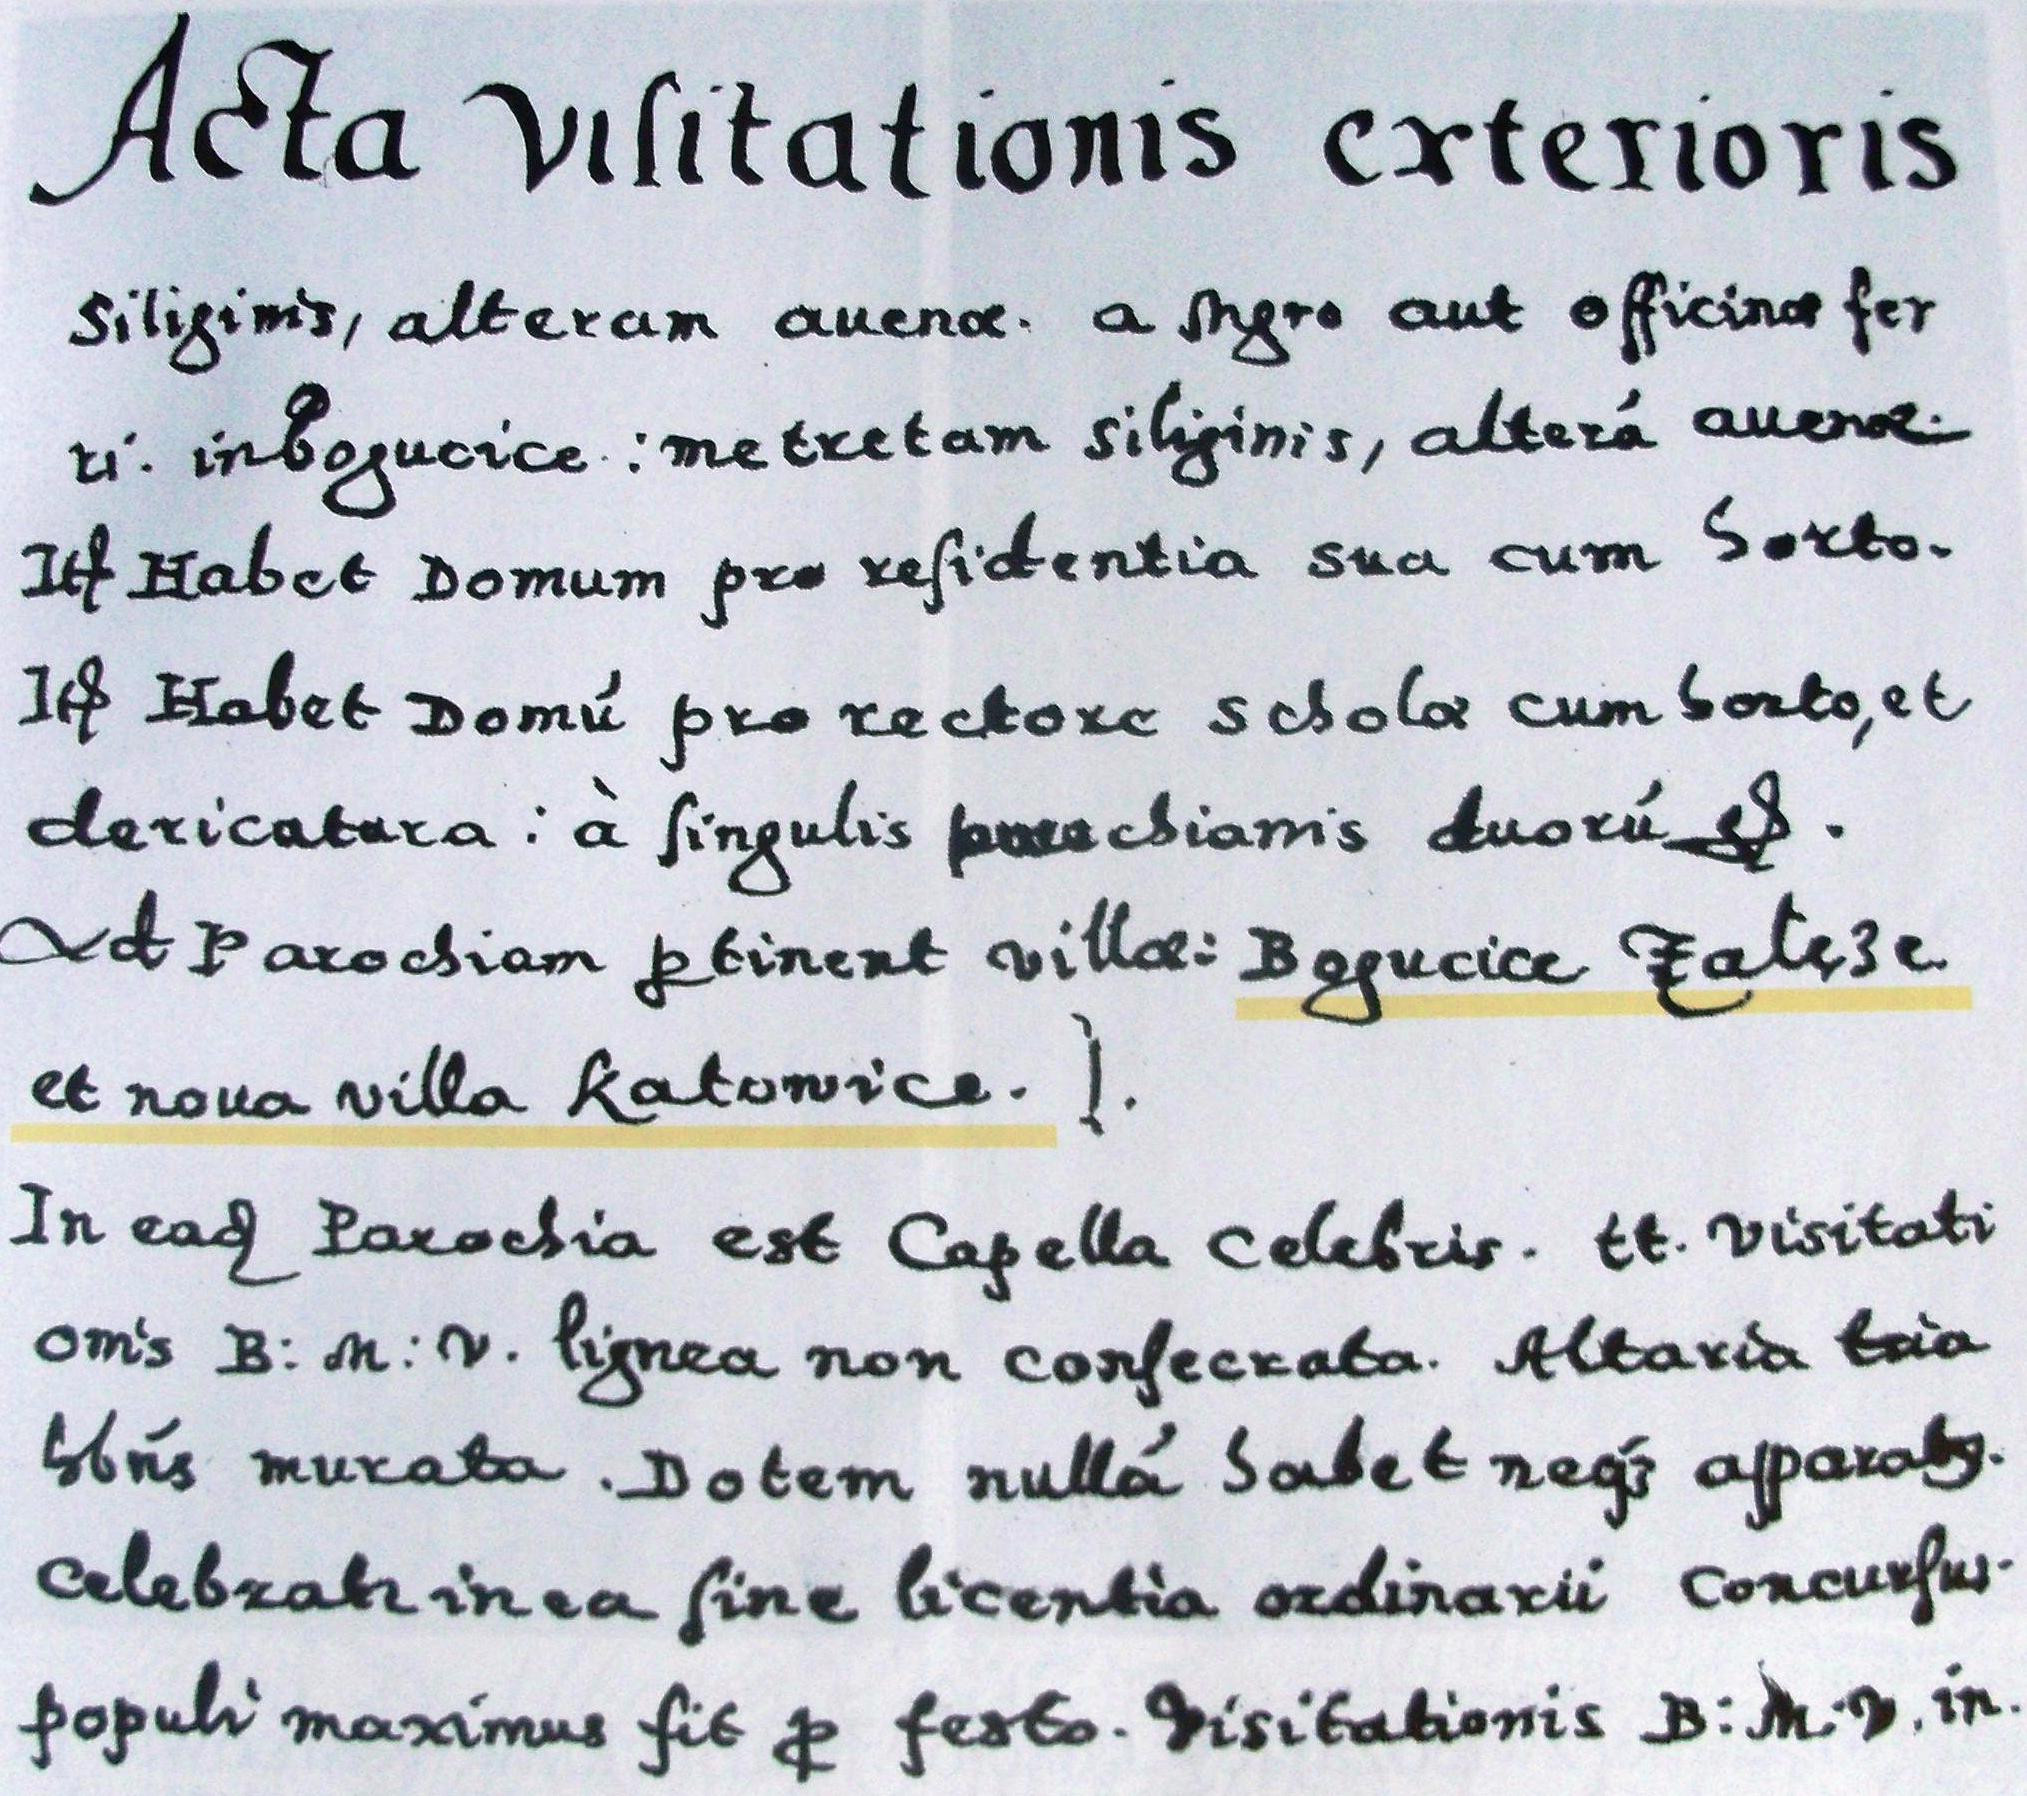 Acta visitationis exterioris
Siliginis, alteram auenæ. a Mgro aut officinæ fer
ri. in Bogucice: metretam siliginis, alterá auenæ.
Itẽ Habet Domum pro residentia sua cum horto.
Itẽ Habet Domú pro rectore scholæ cum horto, et
clericatura: à singulis parochianis duorú
Ad Parochiam ꝑtinent villæ: Bogucice Załęże
et noua villa Katowice. ].
In eadꝫ Parochia est Capella Celebris. tt. Visitati
onis B: M: V. lignea non consecrata. Altaria tria
hbńs murata. Dotem nullá habet neqꝫ apparatꝰ.
Celebratr in ea sine licentia ordinarii Concursus.
populi maximus fit ꝓ festo. Visitationis B: M: V. in.